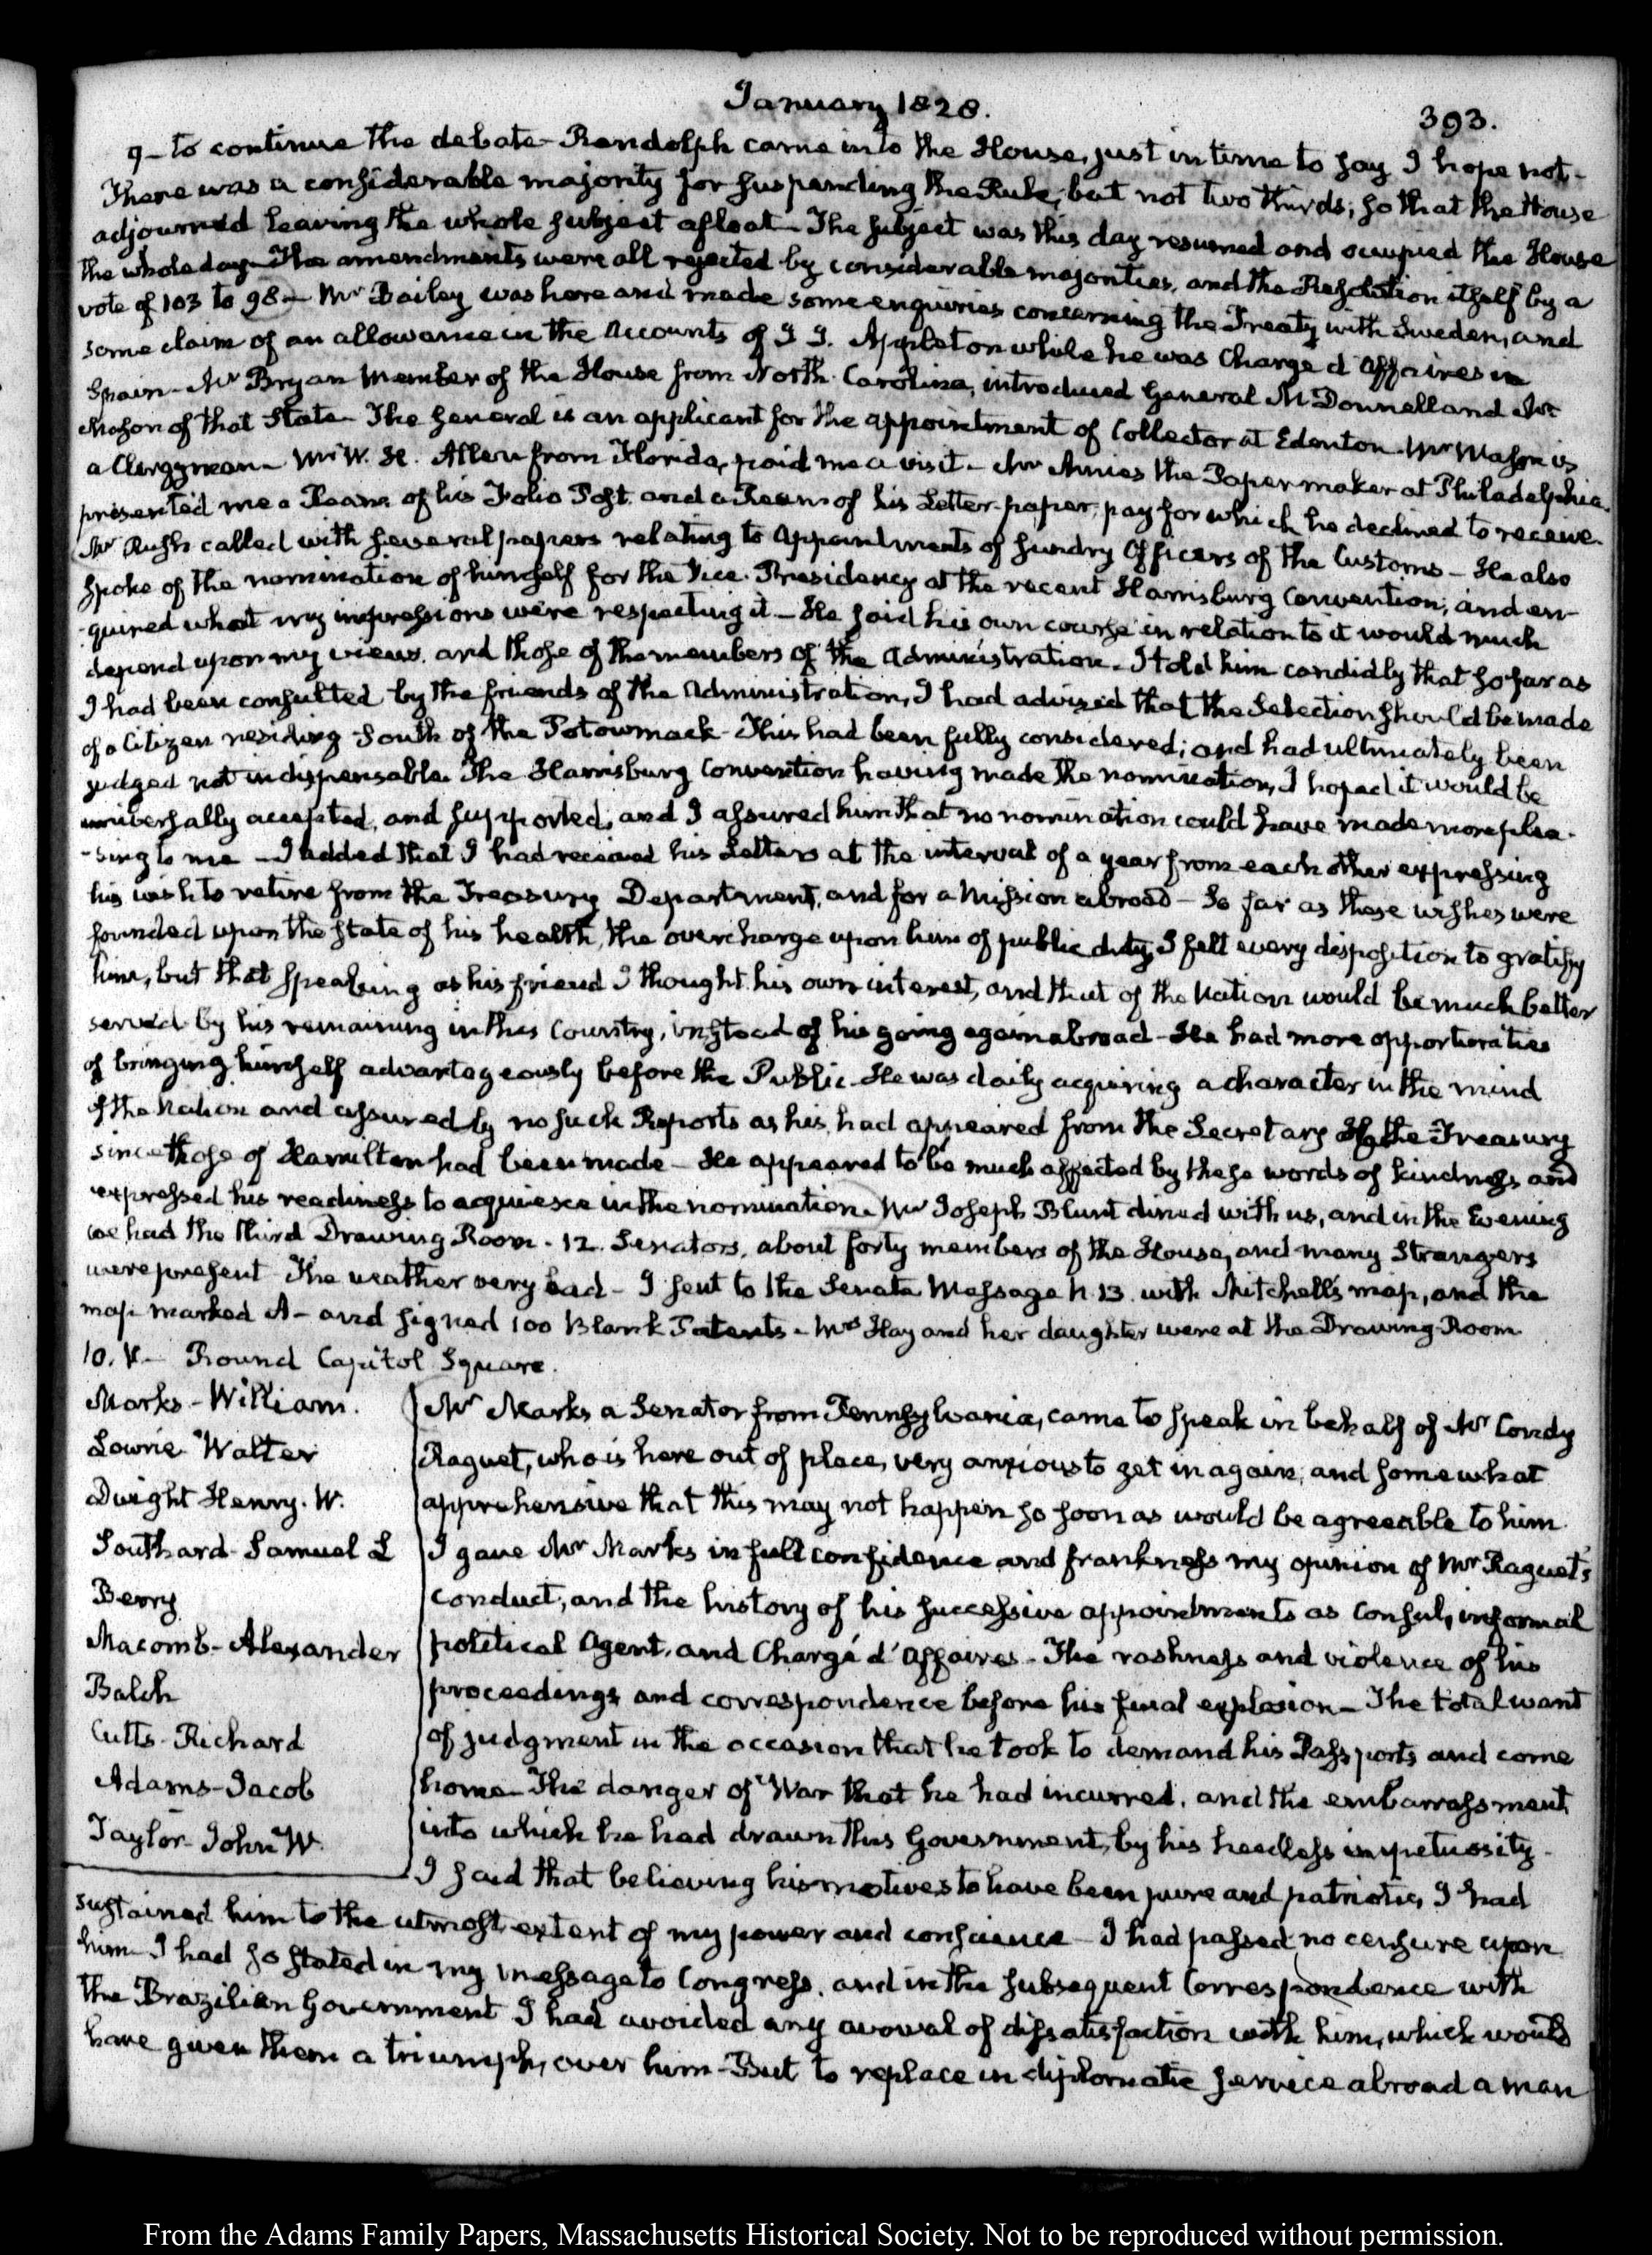 January 1828.
393.
9 - to continue the debate - Randolph came into the House, just in time to say I hope not -
There was a considerable majority for suspending the Rule; but not two thirds; so that the House
adjourned leaving the whole subject afloat - The subject was this day resumed and occupied the House
the whole day - The amendments were all rejected by considerable majorities, and the Resolution itself by a
vote of 103 to 98 - Mr Bailey was here and made some enquiries concerning the Treaty with Sweden, and
some claim of an allowance in the Accounts of J. J. Appleton while he was Charge d'Affaires in
Spain - Mr Bryan Member of the House from North Carolina, introduced General McDonnell and Mr
Mason of that State - The General is an applicant for the appointment of Collector at Edenton - Mr Mason is
a Clergyman - Mr W. H. Allen from Florida, paid me a visit - Mr Amies the Paper maker at Philadelphia
presented me a Ream of his Folio Post and a Ream of his Letter-paper, pay for which he declined to receive.
Mr Rush called with several papers relating to Appointments of sundry Officers of the Customs - He also
spoke of the nomination of himself for the Vice-Presidency at the recent Harrisburg Convention; and en-
-quired what my impressions were respecting it - He said his own course in relation to it would much
depend upon my views, and those of the members of the Administration - I told him candidly that so far as
I had been consulted by the friends of the Administration, I had advised that the Selection should be made
of a Citizen residing South of the Potowmack - This had been fully considered; and had ultimately been
judged not indispensable. The Harrisburg Convention having made the nomination, I hoped it would be
universally accepted, and supported; and I assured him that no nomination could have made more plea-
-sing to me - I added that I had received his Letters at the interval of a year from each other expressing
his wish to retire from the Treasury Department, and for a Mission abroad - So far as these wishes were
founded upon the state of his health, the overcharge upon him of public duty, I felt every disposition to gratify
him, but that speaking as his friend I thought his own interest, and that of the Nation would be much better
served by his remaining in this Country, instead of his going again abroad - He had more opportunities
of bringing himself advantageously before the Public - He was daily acquiring a character in the mind
of the Nation and assuredly no such Reports as his, had appeared from the Secretary of the Treasury
since those of Hamilton had been made - He appeared to be much affected by these words of kindness and
expressed his readiness to acquiesce in the nomination - Mr Joseph Blunt dined with us, and in the Evening
we had the third Drawing Room - 12. Senators, about forty members of the House, and many Strangers
were present - The weather very bad - I sent to the Senate Message N. 13. with Mitchell's map, and the
map marked A - and signed 100 Blank Patents - Mrs Hay and her daughter were at the Drawing Room
10. V. - Round Capitol Square.
Marks - William.
Lowrie Walter
Dwight Henry. W.
Southard - Samuel L
Berry
Macomb - Alexander
Balch
Cutts - Richard
Adams - Jacob
Taylor - John W.
Mr Marks a Senator from Pennsylvania, came to speak in behalf of Mr Condy
Raguet, who is here out of place, very anxious to get in again, and somewhat
apprehensive that this may not happen so soon as would be agreeable to him.
I gave Mr Marks in full confidence and frankness my opinion of Mr Raguet's
conduct, and the history of his successive appointments as Consul, informal
political Agent, and Chargé d'Affaires - The rashness and violence of his
proceedings and correspondence before his final explosion - The total want
of judgment in the occasion that he took to demand his Passports and come
home - The danger of War that he had incurred, and the embarrassment
into which he had drawn this Government, by his heedless impetuosity -
I said that believing his motives to have been pure and patriotic, I had
sustained him to the utmost extent of my power and conscience - I had passed no censure upon
him - I had so stated in my message to Congress, and in the subsequent Correspondence with
the Brazilian Government I had avoided any avowal of dissatisfaction with him, which would
have given them a triumph, over him - But to replace in diplomatic service abroad a man
From the Adams Family Papers, Massachusetts Historical Society. Not to be reproduced without permission.